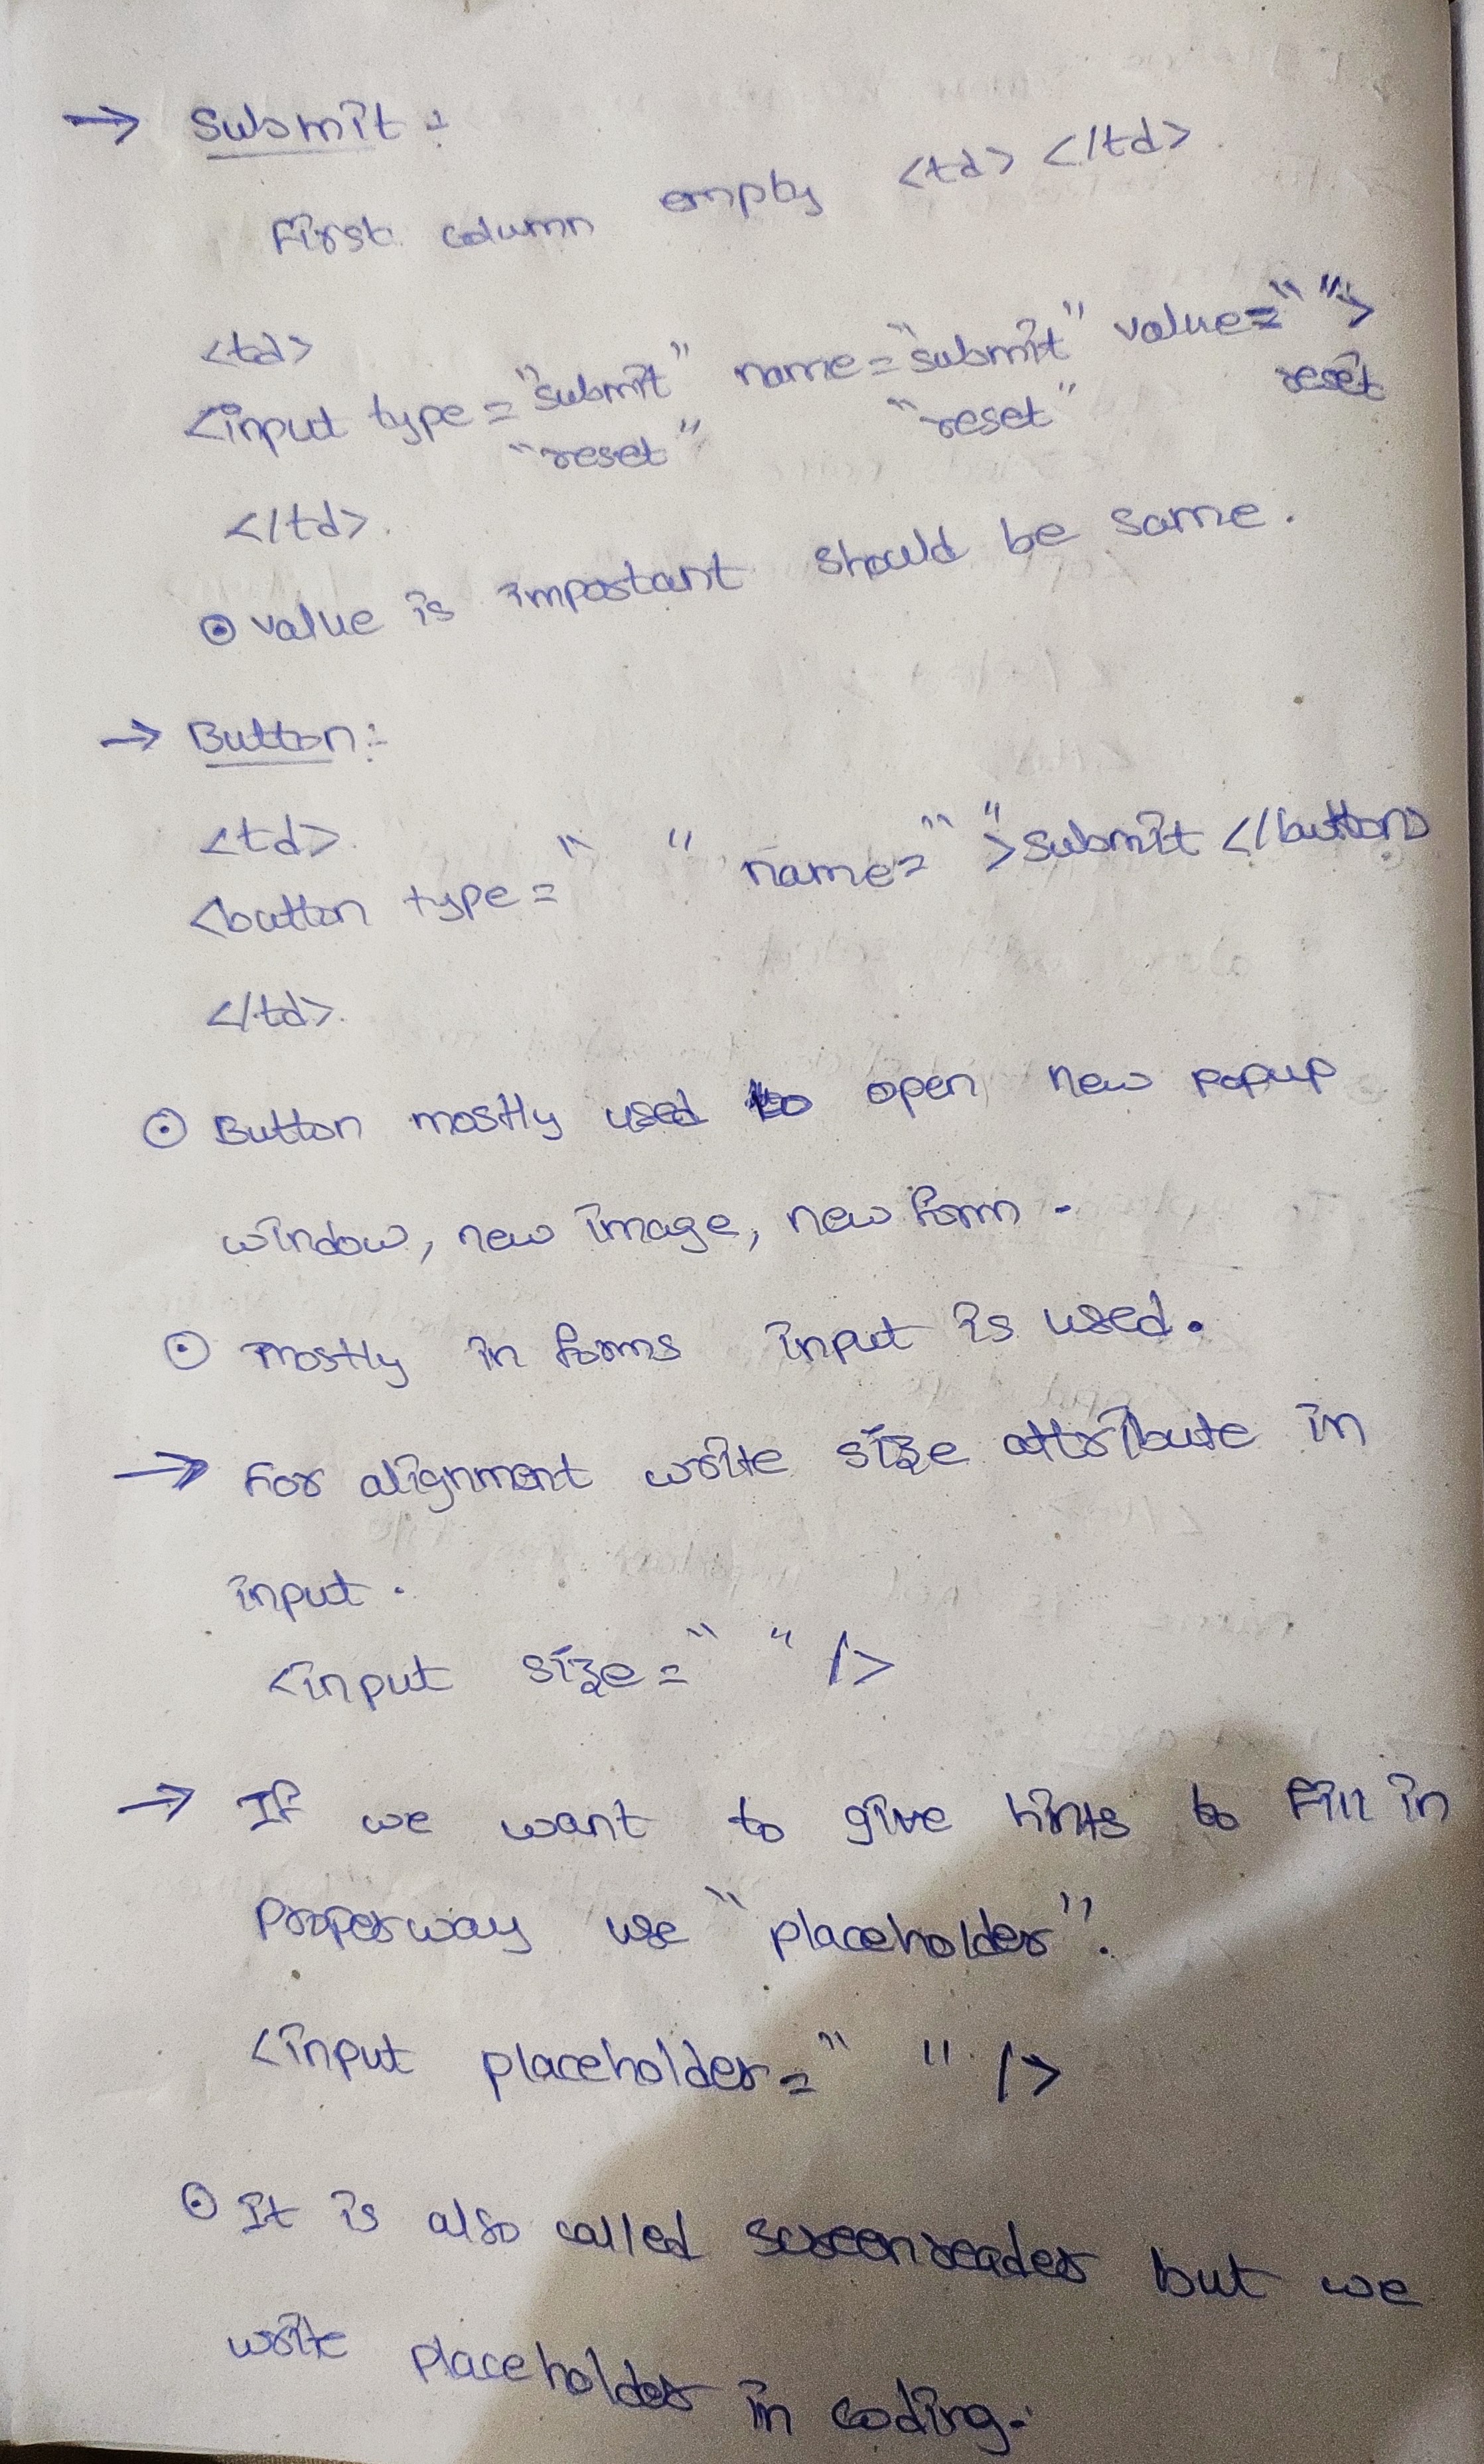 → Submit :-
First column empty <td> </td>.
<td>
<input type = "submit" name = "submit" value = " ">
"reset" "reset" reset
</td>.
⊙ value is important should be same.
→ Button :-
<td>.
<button type = " " name = " ">submit </button>
</td>.
⊙ Button mostly used to open new popup
window, new image, new form.
⊙ mostly in forms input is used.
→ For alignment write size attribute in
input.
<input size = " " />
→ If we want to give hints to fill in
Properway use "placeholder".
<input placeholder = " " />
⊙ It is also called screenreader but we
write placeholder in coding.